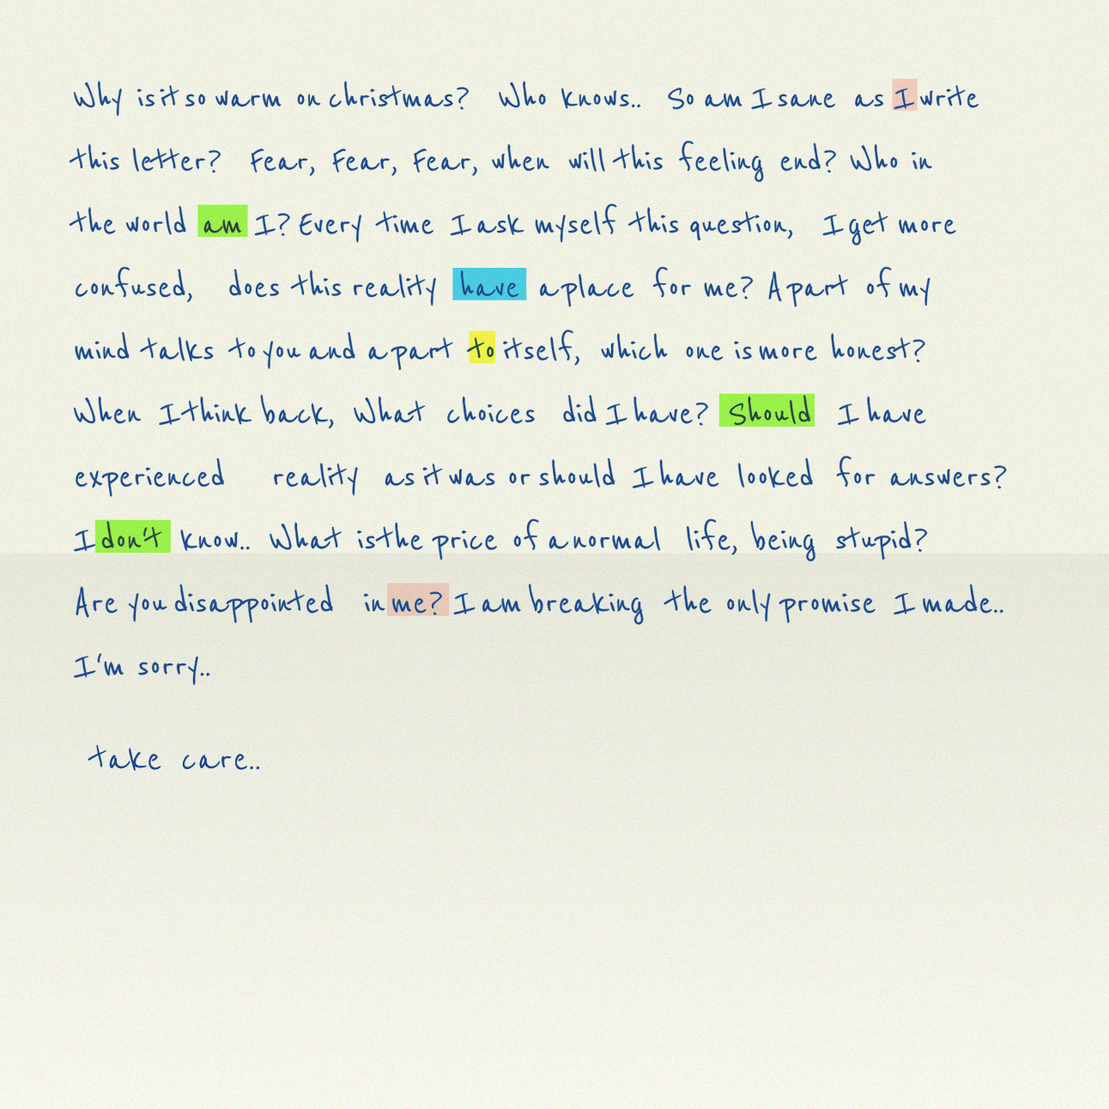 Why is it so warm on christmas? Who knows.. So am I sane as I write
this letter? Fear, Fear, Fear, when will this feeling end? Who in
the world am I? Every time I ask myself this question, I get more
confused, does this reality have a place for me? A part of my
mind talks to you and a part to itself, which one is more honest?
When I think back, What choices did I have? Should I have
experienced reality as it was or should I have looked for answers?
I don't know.. What is the price of a normal life, being stupid?
Are you disappointed in me? I am breaking the only promise I made..
I'm sorry..
take care..